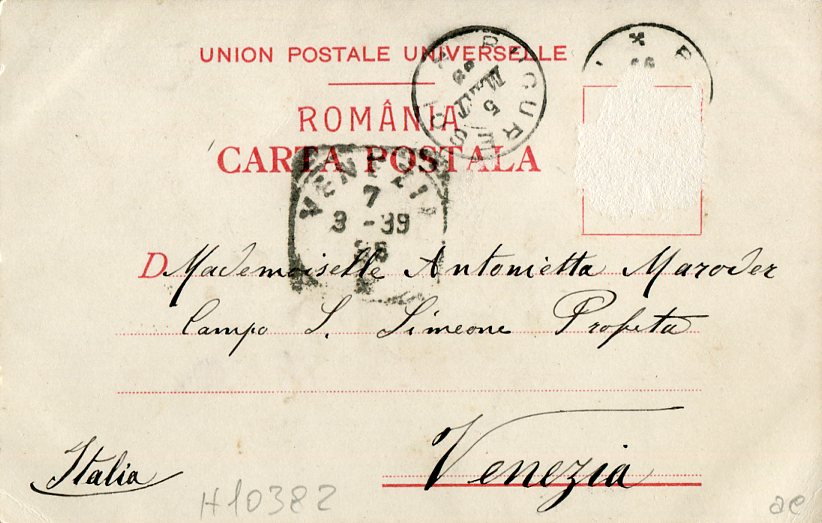 UNION POSTALE UNIVERSELLE
ROMÂNIA
CARTA POSTALA
BUCURESCI
5
VENEZIA
7
3 - 99
D Mademoiselle Antonietta Maroder
Campo S. Simeone Profeta
Venezia
Italia
H10382
ae